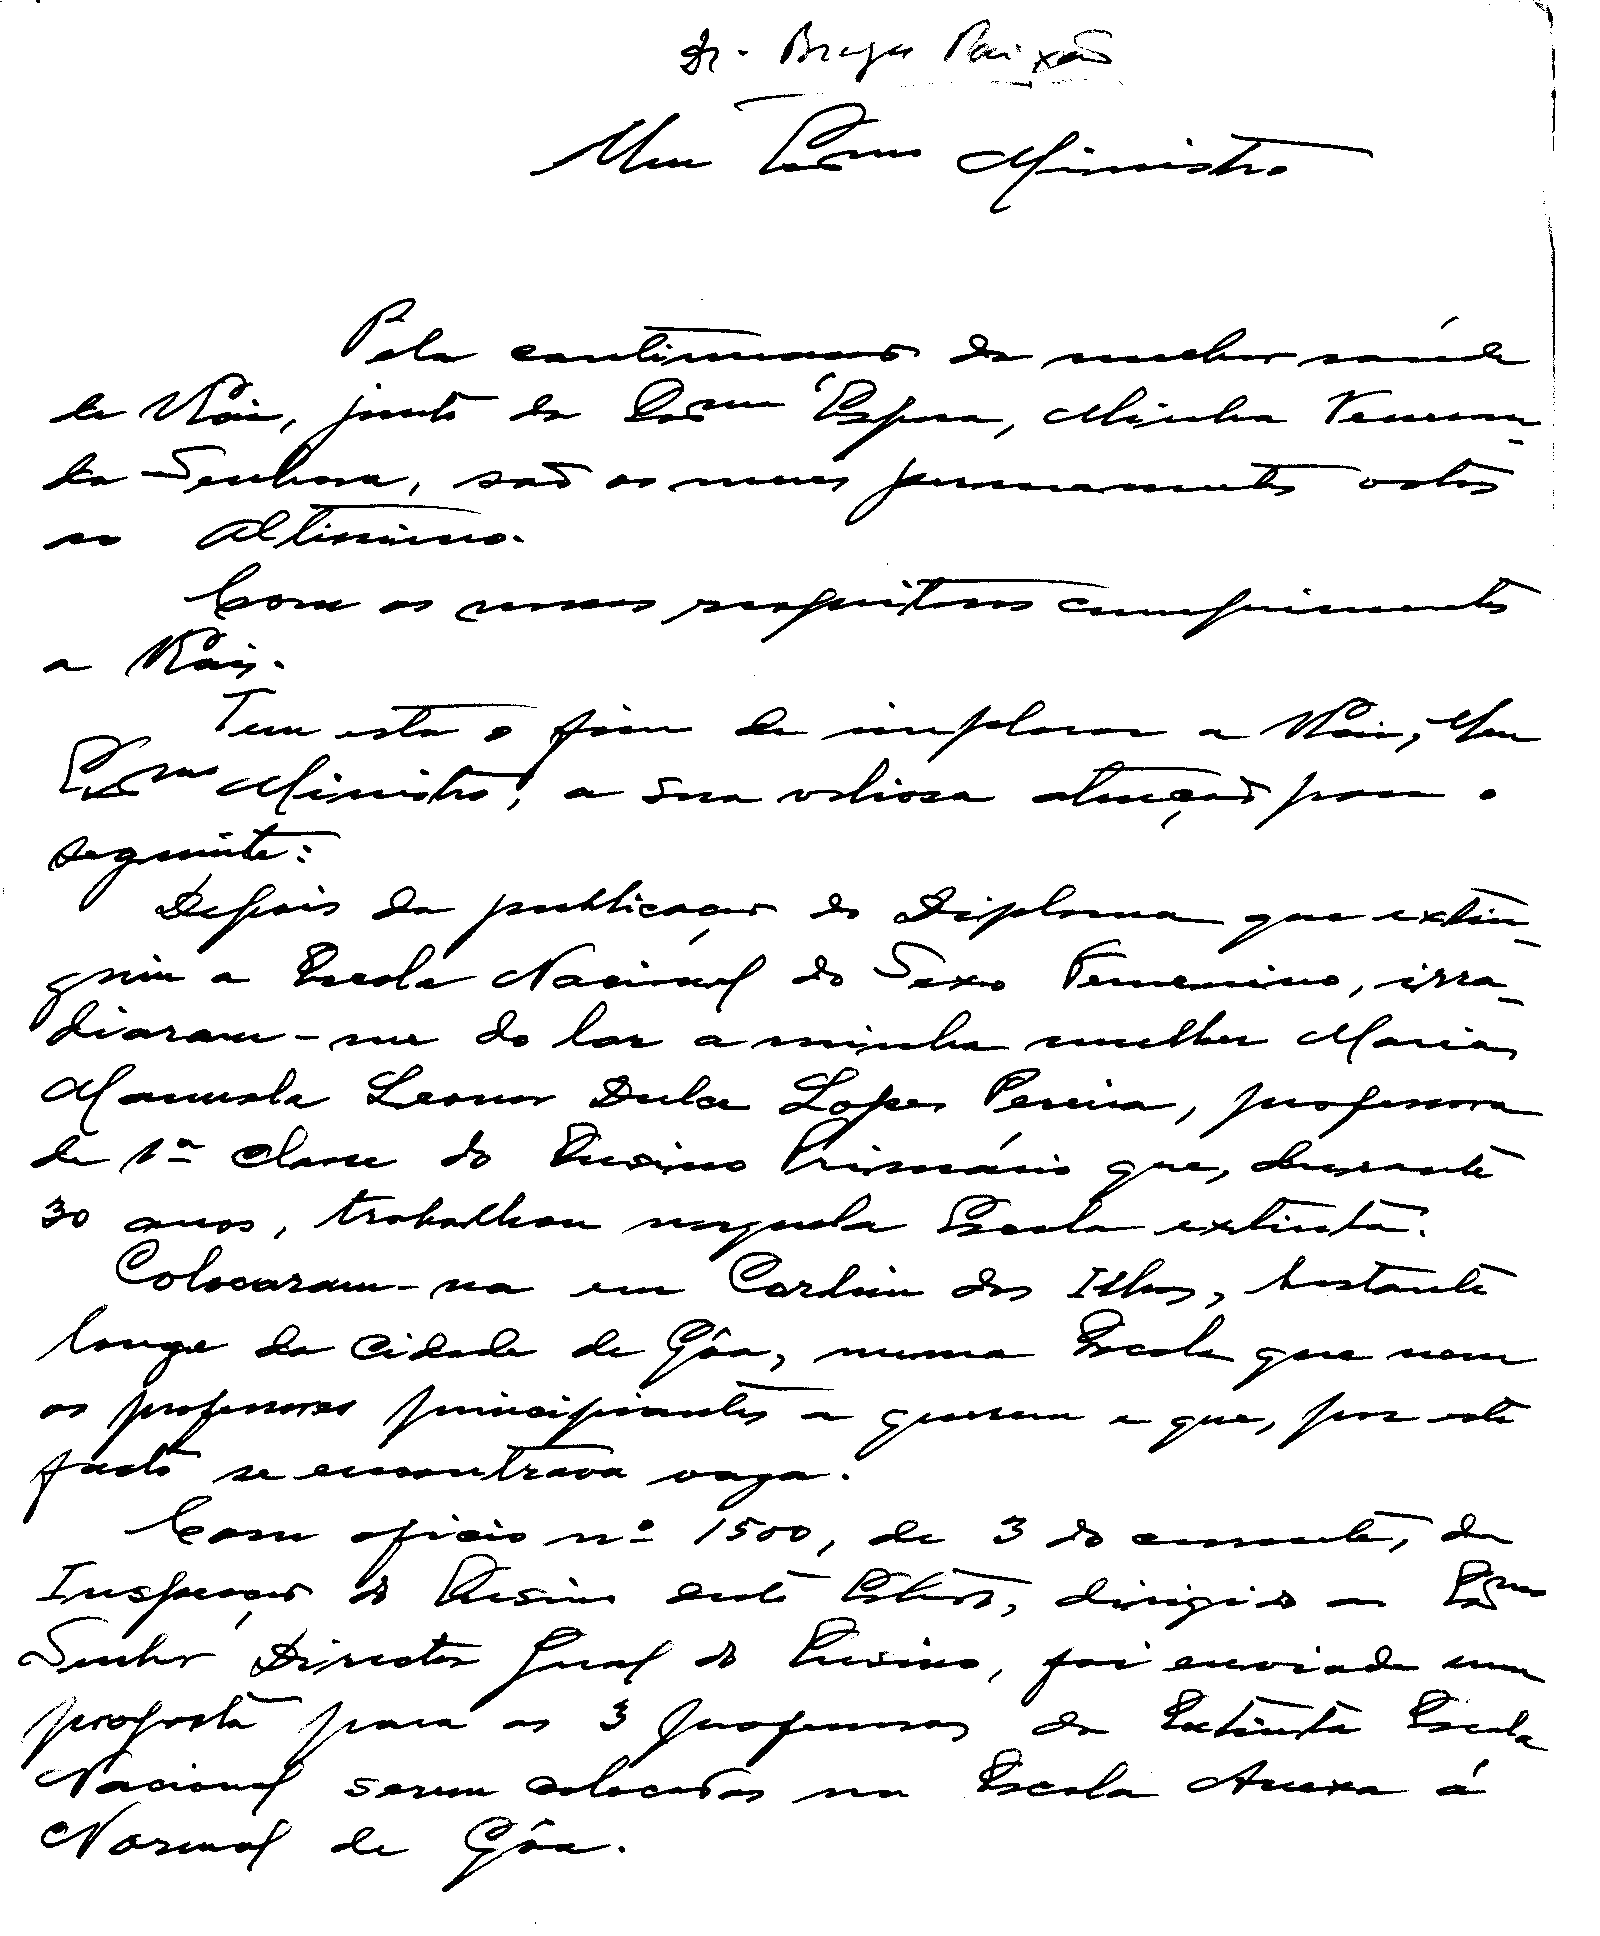 Dr. Braga Paixão
Meu Exmo Ministro
Pela continuação da melhor saúde
de V.Exia, junto da Exma Espôsa, Minha Veneran-
da Senhora, são os meus permanentes votos
ao Altíssimo.
Com os nossos respeitosos cumprimentos
a V.Exia.
Tem esta o fim de implorar a V.Exia, Meu
Exmo Ministro, a sua valiosa atenção para o
seguinte:
Depois da publicação do Diploma que extin-
guiu a Escola Nacional do Sexo Femenino, irra-
diaram-me do lar a minha mulher Maria
Manuela Leonor Dulce Lopes Pereira, professora
de 1ª classe do Ensino Primário que, durante
30 anos, trabalhou naquela Escola extinta.
Colocaram-na em Corlim das Ilhas, bastante
longe da cidade de Gôa, numa Escola que nem
os professores principiantes a querem e que, por este
facto se encontrava vaga.
Com ofício nº 1500, de 3 do corrente, da
Inspecção do Ensino deste Estado, dirigido ao Exmo
Senhor Director Geral do Ensino, foi enviada uma
proposta para as 3 professoras da Extinta Escola
Nacional serem colocadas na Escola Anexa á
Normal de Gôa.